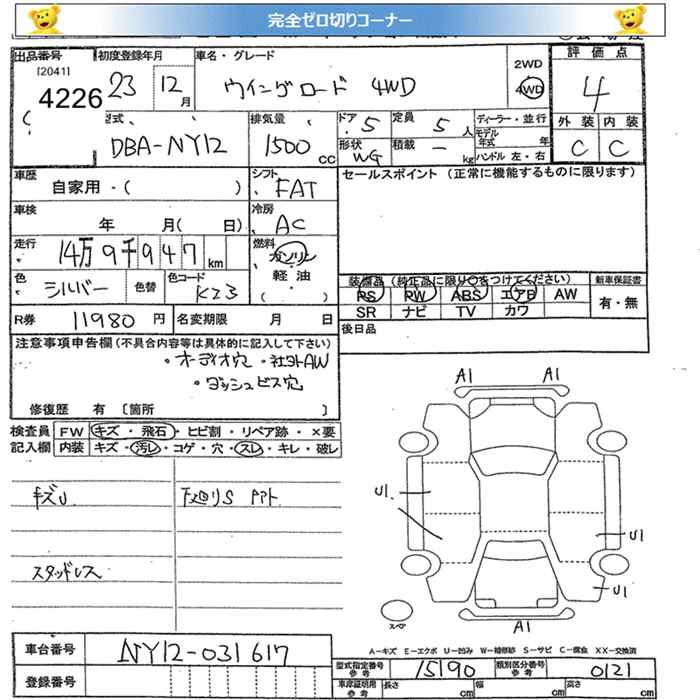 完全ゼロ切りコーナー
出品番号 初度登録年月 車名・グレード 2WD 評価点
[2041] 4226 23 12月 ウイングロード 4WD 4WD 4
型式 排気量 ドア 5 定員 5人 ディーラー・並行 外装 内装
DBA-NY12 1500cc 形状 WG 積載 － kg モデル年式 年 C C
ハンドル 左・右
車歴 シフト セールスポイント (正常に機能するものに限ります)
自家用・( ) FAT
車検 冷房
年 月( 日) AC
走行 14万9千947km 燃料 ガソリン
軽油
・( )
色 シルバー 色替 色コード K23
装備品 (純正品に限り○をつけてください) 新車保証書
PS PW ABS エアB AW 有・無
SR ナビ TV カワ
R券 11980円 名変期限 月 日
後日品
注意事項申告欄(不具合内容等は具体的に記入して下さい)
・オーディオ穴 ・社外AW
・ダッシュビス穴
修復歴 有 〔箇所 〕
検査員 FW キズ・飛石・ヒビ割・リペア跡・×要
記入欄 内装 キズ・汚レ・コゲ・穴・スレ・キレ・破レ
キズU 下廻りS
スタッドレス
A1 A1
U1
U1
U1
A1
スペア
A－キズ E－エクボ U－凹み W－補修跡 S－サビ C－腐食 XX－交換済
車台番号 NY12-031617
登録番号
型式指定番号 参考 15190 類別区分番号 参考 0121
車庫証明用 参考 長さ cm 幅 cm 高さ cm